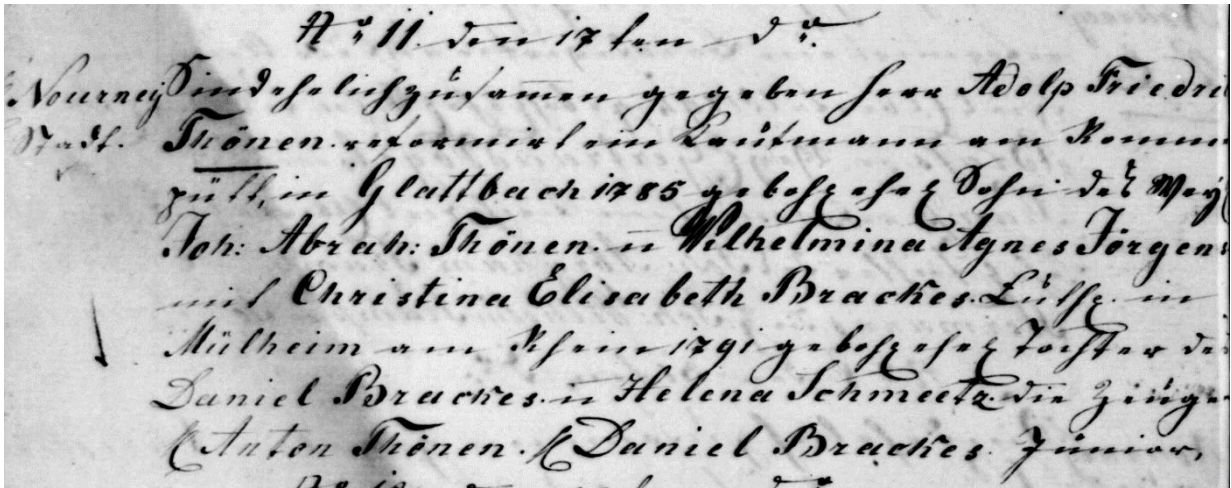 No 11. den 17ten do.
Nourney Sind ehelich zusam̄en gegeben Herr Adolp Friedri
Stadt. Thönen. reformirt ein Kaufmann am
pütt, in Glattbach 1785 gebohr ehel Sohn der
Joh: Abrah: Thönen. u Wilhelmina Agnes Jörgens
mit Christina Elisabeth Brackes. Luthr. in
Mülheim am Rhein 1791 gebohr ehel Tochter de
Daniel Brackes. u Helena Schmeetz. die Zeuge
Anton Thönen. Daniel Brackes. Junior,